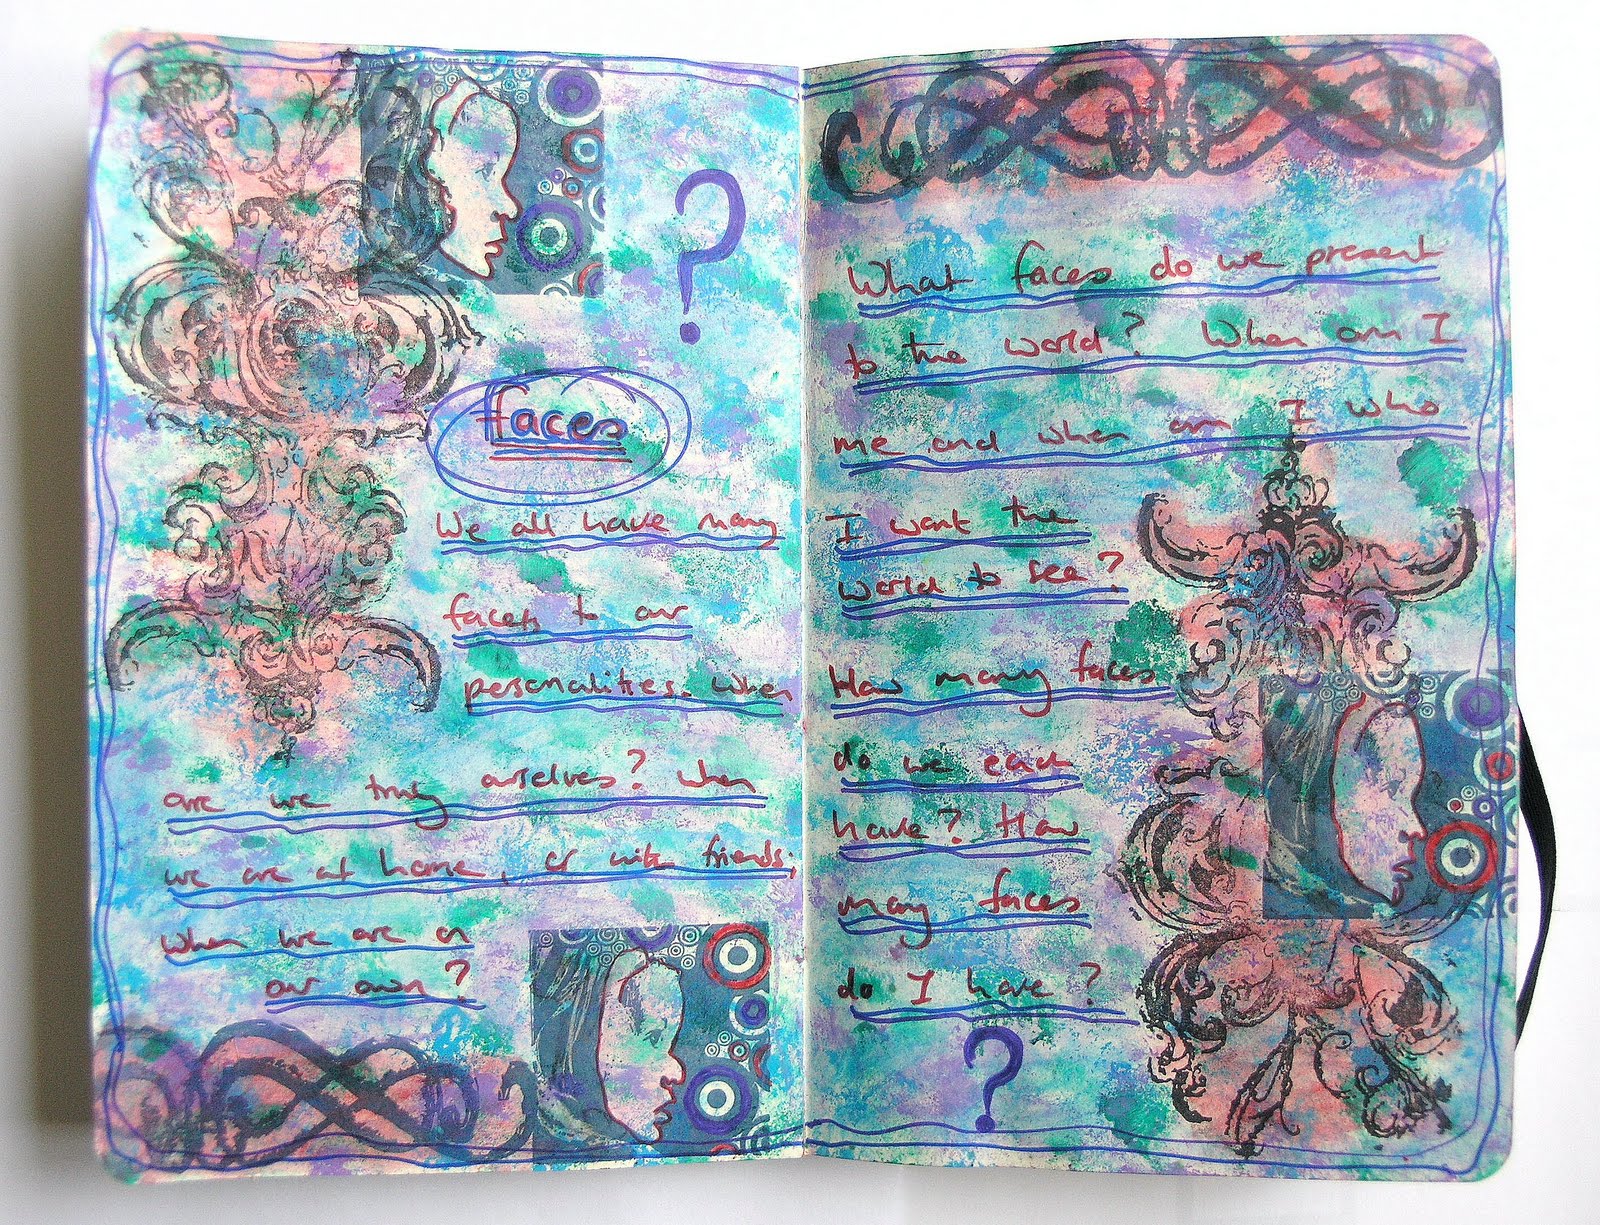 ?
faces
We all have many
faces to our
personalities. When
are we truly ourselves? When
we are at home, or with friends,
when we are on
our own?
What faces do we present
to the world? When am I
me and when am I who
I want the
world to see?
How many faces
do we each
have? How
many faces
do I have?
?